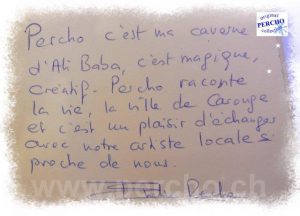 original
PERCHO
collection
Percho c'est ma caverne
d'Ali Baba, c'est magique,
créatif. Percho raconte
la vie, la ville de Carouge
et c'est un plaisir d'échanger
avec notre artiste locale si
proche de nous.
Percho
www.percho.ch